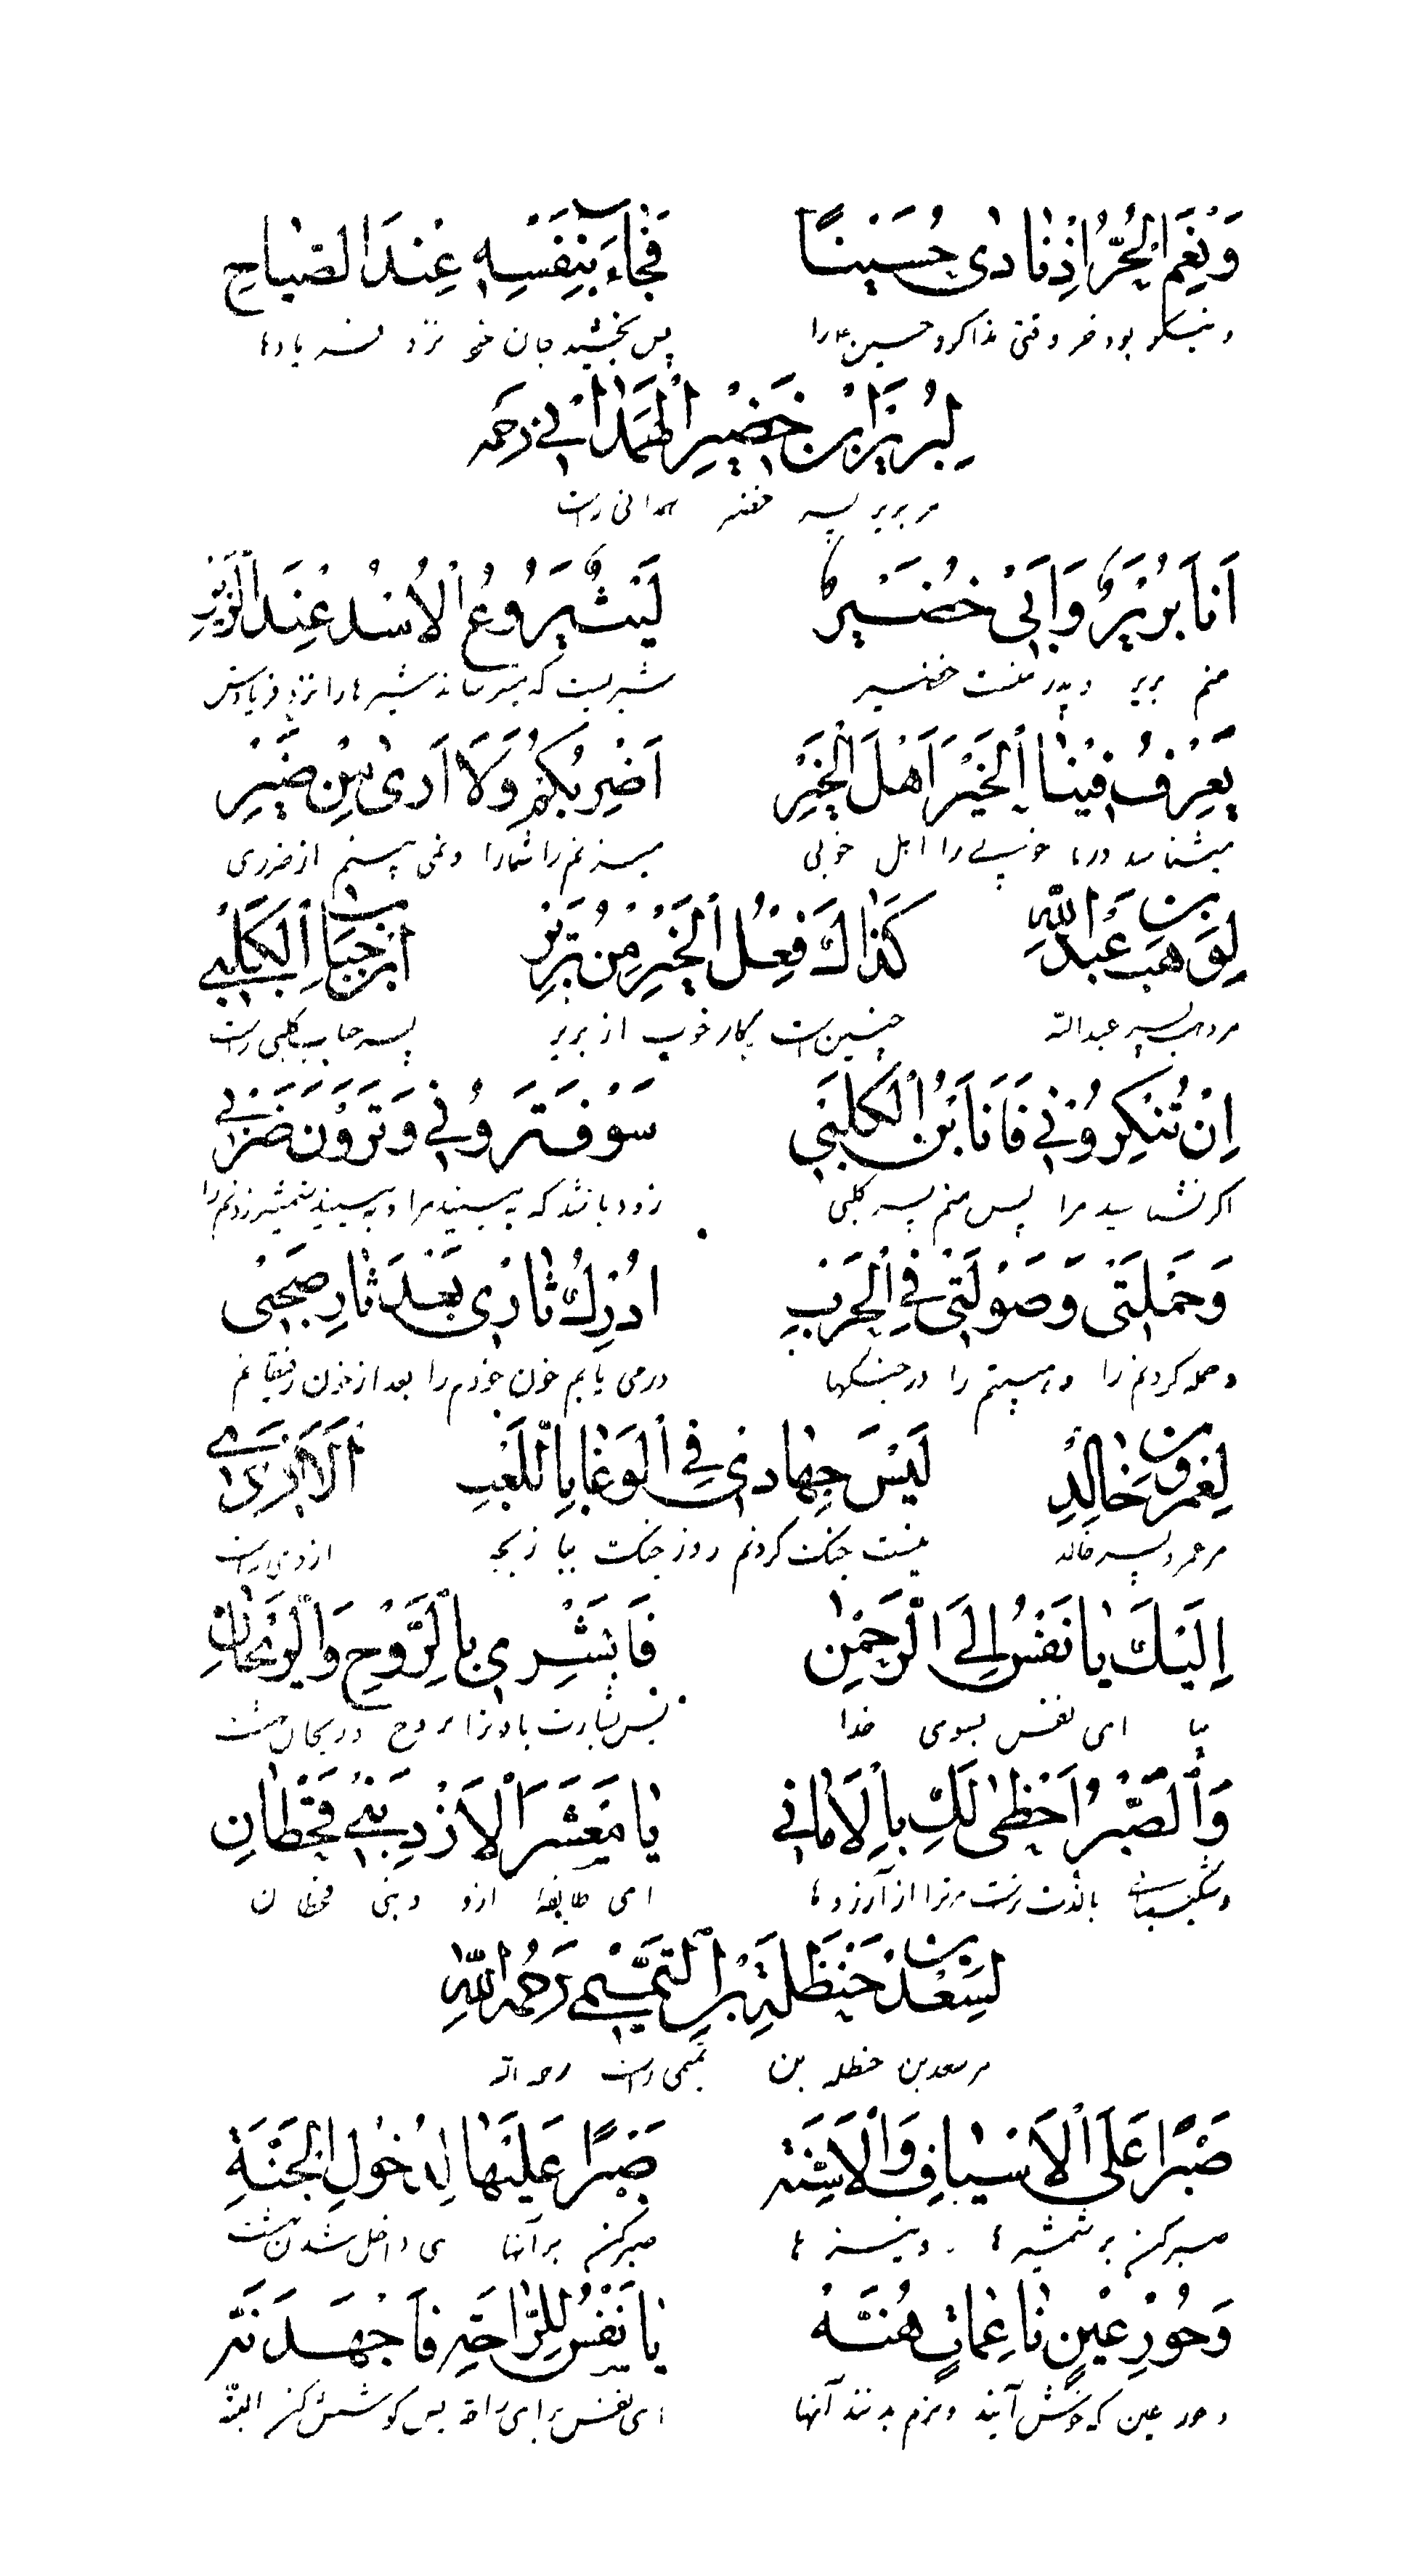 وَنِعْمَ الْحُرُّ اِذْ نٰادٰى حُسَيْنًا فَجٰاءَ بِنَفْسِهِ عِنْدَ الصَّبٰاحِ
و نیکو بود حر وقتی ندا کرد حسین را پس بخشید جان خود نزد
لِبُرَيْرِ ابْنِ خُضَيْرِ الْهَمَدٰانِي رَحِمَهُ
مر بریر پسر خضیر همدانی راست
اَنَا بُرَيْرٌ وَاَبِيْ خُضَيْرٌ لَيْثٌ يَرُوعُ الْاُسْدَ عِنْدَ الزَّئْرِ
منم بریر و پدر منست خضیر شیریست که میترساند شیرها را نزد فریادش
يَعْرِفُ فِيْنَا الْخَيْرَ اَهْلُ الْخَيْرِ اَضْرِبُكُمْ وَلَا اَرىٰ مِنْ ضَيْرِ
میشناسد در ما خوبی را اهل خوبی میزنم شما را و نمی بینم از ضرری
لِوَهَبِ بْنِ عَبْدِ اللّٰهِ كَذٰاكَ فِعْلُ الْخَيْرِ مِنْ بُرَيْرِ ابْنِ حُبَابِ الْكَلْبِي
مر وهب پسر عبدالله چنین است کار خوب از بریر پسر حباب کلبی راست
اِنْ تُنْكِرُوْنِي فَاَنَا بْنُ الْكَلْبِي سَوْفَ تَرَوُنِي وَتَرَوْنَ ضَرْبِي
اگر نشناسید مرا پس منم پسر کلبی زود باشد که ببینید مرا و ببینید شمشیر زدنم را
وَحَمْلَتِي وَصَوْلَتِي فِي الْحَرْبِ اُدْرِكُ ثٰارِي بَعْدَ ثٰارِ صَحْبِي
و حمله کردنم را و را در جنگها در می یابم خون خودم را بعد از خون رفیقانم
لِعَمْرِو بْنِ خٰالِدِ لَيْسَ جِهٰادِي فِي الْوَغٰا بِاللَّعِبِ الْاَزْدِيِّ
مر عمرو پسر خالد نیست جنگ کردنم روز جنگ ببازیچه ازدی راست
اِلَيْكَ يٰا نَفْسُ اِلَى الرَّحْمٰنِ فَابْشِرِي بِالرَّوْحِ وَالرَّيْحٰانِ
بیا ای نفس بسوی خدا پس بشارت باد ترا بروح و ریحان بهشت
وَالصَّبْرُ اَحْظٰى لَكِ بِالْاَمٰانِي يٰا مَعْشَرَ الْاَزْدِ بَنِي قَحْطٰانِ
و شکیبائی بالذت تراست مر ترا از آرزوها ای طایفه ازد و بنی قحطان
لِسَعْدِ بْنِ حَنْظَلَةِ بْنِ التَّمِيْمِي رَحِمَهُ اللّٰهِ
مر سعد بن حنظله بن تمیمی راست رحمه الله
صَبْرًا عَلَى الْاَسْيٰافِ وَالْاَسِنَّةِ صَبْرًا عَلَيْهٰا لِدُخُولِ الْجَنَّةِ
صبر کنم بر شمشیرها و نیزه ها صبر کنم بر آنها داخل شدن بهشت
وَحُوْرِ عِيْنٍ نٰاعِمٰاتٍ هُنَّهْ يٰا نَفْسُ لِلرّٰاحَةِ فَاجْهَدَنَّهْ
و حور عین که خوش آیند و نرم بدنند آنها ای نفس برای راحة پس کوشش کن البته